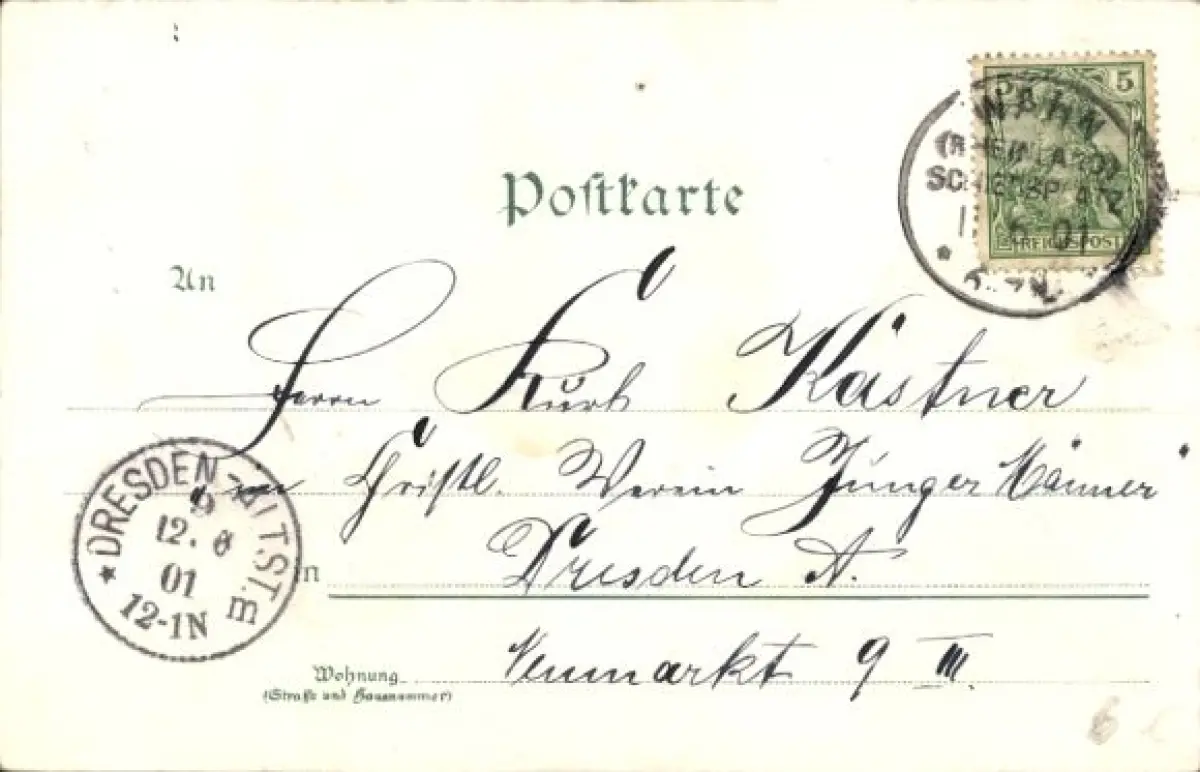 5 5
WAHN
(RHEINLAND)
SCHIESSPLATZ
6 01
REICHSPOST
Postkarte
An
Herrn Kurt Kästner
Christl. Verein Junger Männer
in Dresden A.
Neumarkt 9 III.
Wohnung
(Straße und Hausnummer)
DRESDEN-ALTST.
12. 6
01
12-1N